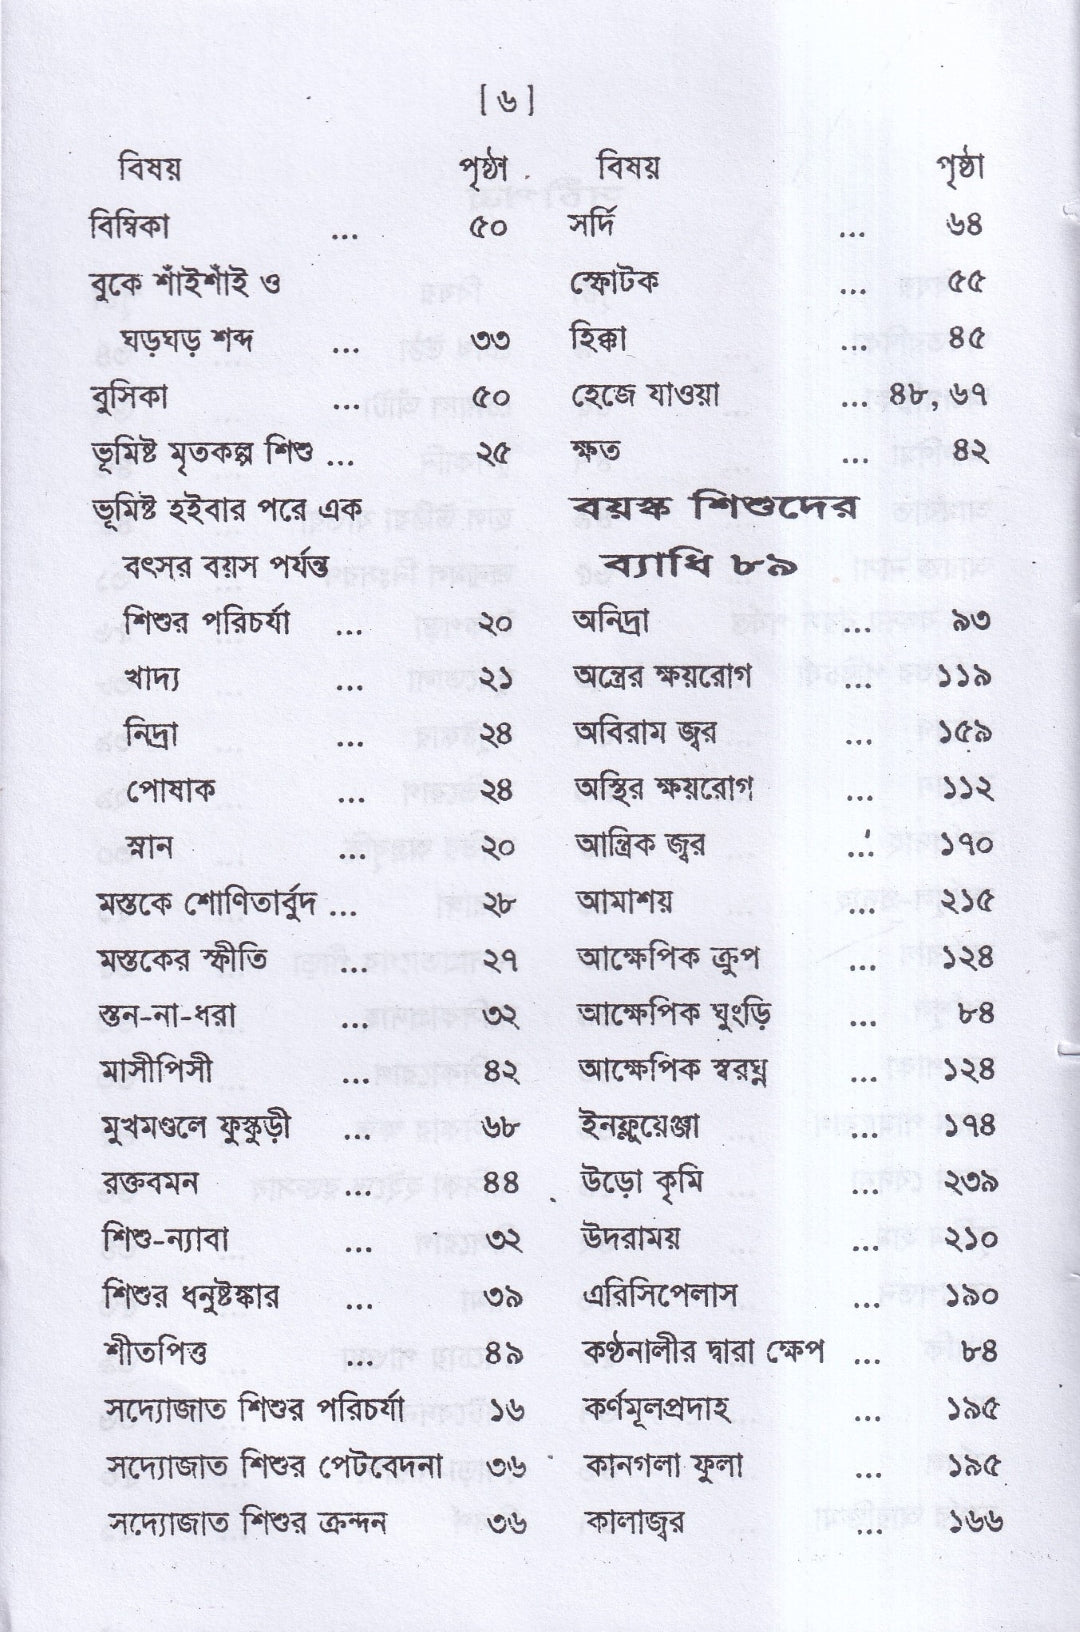 [ ৬ ]
বিষয় পৃষ্ঠা
বিম্বিকা ... ৫০
বুকে শাঁইশাঁই ও
ঘড়ঘড় শব্দ ... ৩৩
বুসিকা ... ৫০
ভূমিষ্ট মৃতকল্প শিশু ... ২৫
ভূমিষ্ট হইবার পরে এক
বৎসর বয়স পর্যন্ত
শিশুর পরিচর্যা ... ২০
খাদ্য ... ২১
নিদ্রা ... ২৪
পোষাক ... ২৪
স্নান ... ২০
মস্তকে শোণিতার্বুদ ... ২৮
মস্তকের স্ফীতি ... ২৭
স্তন-না-ধরা ... ৩২
মাসীপিসী ... ৪২
মুখমণ্ডলে ফুস্কুড়ী ... ৬৮
রক্তবমন ... ৪৪
শিশু-ন্যাবা ... ৩২
শিশুর ধনুষ্টঙ্কার ... ৩৯
শীতপিত্ত ... ৪৯
সদ্যোজাত শিশুর পরিচর্যা ১৬
সদ্যোজাত শিশুর পেটবেদনা ৩৬
সদ্যোজাত শিশুর ক্রন্দন ৩৬
বিষয় পৃষ্ঠা
সর্দি ... ৬৪
স্ফোটক ... ৫৫
হিক্কা ... ৪৫
হেজে যাওয়া ... ৪৮, ৬৭
ক্ষত ... ৪২
বয়স্ক শিশুদের
ব্যাধি ৮৯
অনিদ্রা ... ৯৩
অন্ত্রের ক্ষয়রোগ ... ১১৯
অবিরাম জ্বর ... ১৫৯
অস্থির ক্ষয়রোগ ... ১১২
আন্ত্রিক জ্বর ... ১৭০
আমাশয় ... ২১৫
আক্ষেপিক ক্রুপ ... ১২৪
আক্ষেপিক ঘুংড়ি ... ৮৪
আক্ষেপিক স্বরঘ্ন ... ১২৪
ইনফ্লুয়েঞ্জা ... ১৭৪
উড়ো কৃমি ... ২৩৯
উদরাময় ... ২১০
এরিসিপেলাস ... ১৯০
কণ্ঠনালীর দ্বারা ক্ষেপ ... ৮৪
কর্ণমূলপ্রদাহ ... ১৯৫
কানগলা ফুলা ... ১৯৫
কালাজ্বর ... ১৬৬